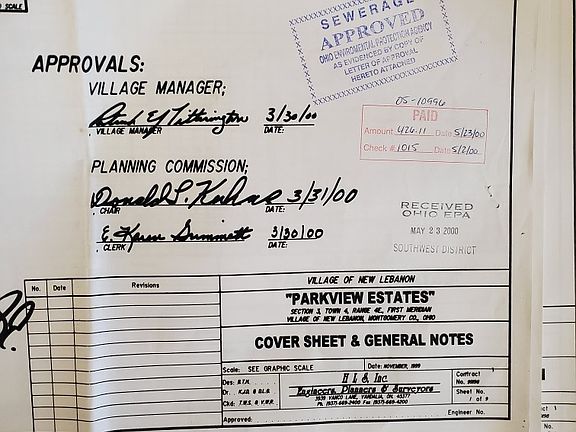 SCALE
SEWERAGE
APPROVED
OHIO ENVIROMENTAL PROTECTION AGENCY
AS EVIDENCED BY COPY OF
LETTER OF APPROVAL
HERETO ATTACHED
APPROVALS:
VILLAGE MANAGER;
3/30/00
VILLAGE MANAGER
DATE:
05-10996
PAID
Amount 426.11 Date 5/23/00
Check # 1015 Date 5/2/00
PLANNING COMMISSION;
Donald L. Kuhns 3/31/00
CHAIR
DATE:
E. Karen Dimmett 3/30/00
CLERK
DATE:
RECEIVED
OHIO EPA
MAY 23 2000
SOUTHWEST DISTRICT
No. Date Revisions
VILLAGE OF NEW LEBANON
"PARKVIEW ESTATES"
SECTION 3, TOWN 4, RANGE 4E, FIRST MERIDIAN
VILLAGE OF NEW LEBANON, MONTGOMERY CO., OHIO
COVER SHEET & GENERAL NOTES
Scale: SEE GRAPHIC SCALE
Date: NOVEMBER, 1999
Contract
No.
Des: B.T.H.
Dr. K.J.B. & D.L.B.
Ckd: T.W.S. & V.W.R.
H L S, Inc
Engineers, Planners & Surveyors
VANDALIA, OH. 45377
Sheet No.
1 of 9
Approved:
Engineer No.